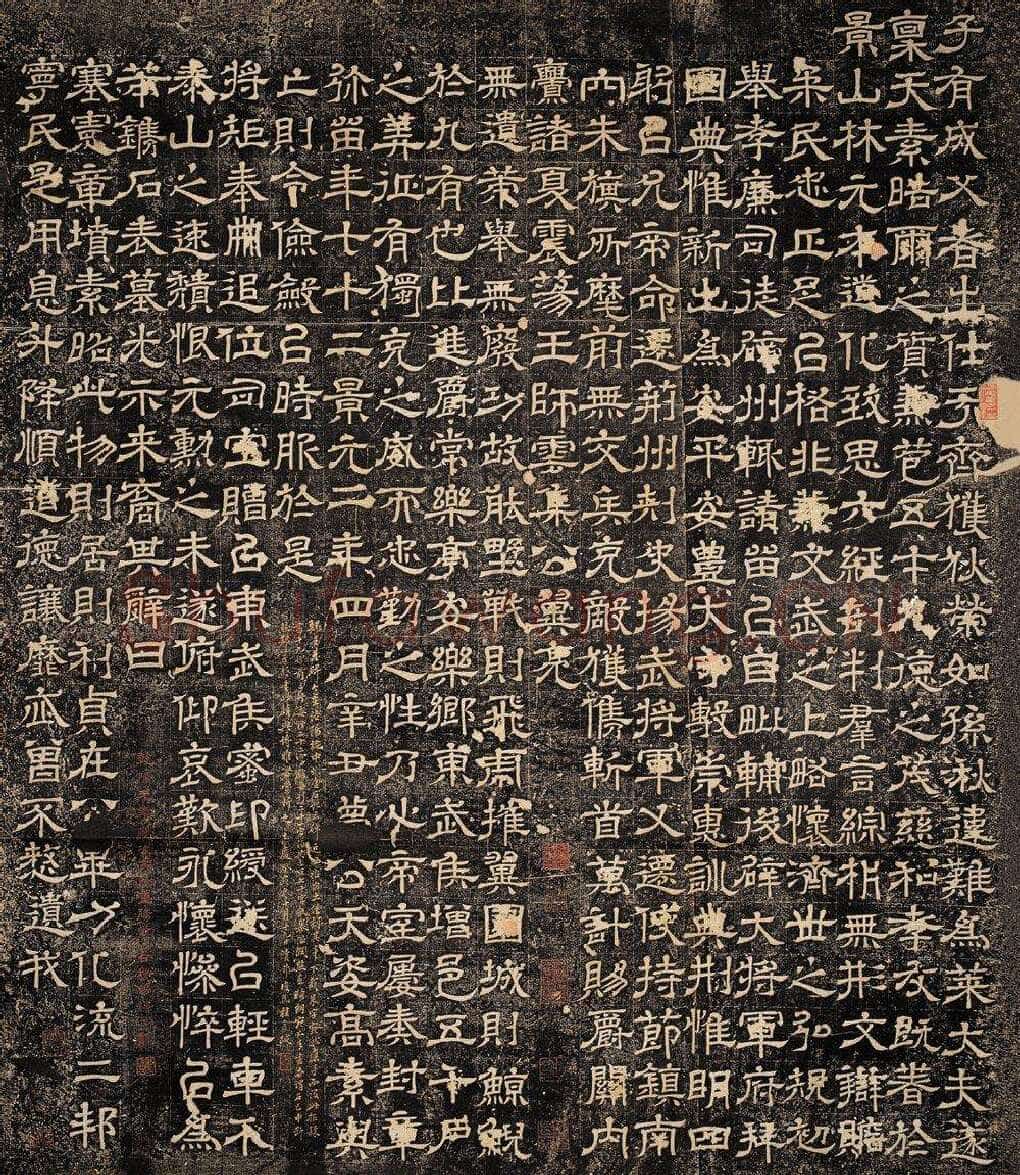 子有成父者出仕于齊獲狄榮如孫湫違難爲萊大夫遂
稟天素晧爾之質兼苞五才九德之茂慈和孝友既著於
景山林元本道化致思六經剖判羣言綜析無形文辯贍
來民忠正足以格非兼文武之上略懷濟世之弘規初
舉孝廉司徒辟州輒請留以自毗輔後辟大將軍府拜
國典惟新出爲安平安豐太守敷崇惠訓典刑惟明四
躬以允帝命遷荊州刺史揚武將軍又遷使持節鎮南
內朱旗所麾前無交兵克敵獲儁斬首萬計賜爵關內
釁諸夏震蕩王師雲集公翼亮
無遺策舉無廢功故能野戰則飛虜摧翼圍城則鯨鯢
於九有也比進爵常樂亭安樂鄉東武侯增邑五千戶
之筭征有獨克之威而忠勤之性乃心帝室屢奏封章
弥留年七十二景元二年四月辛丑薨公天姿高素與
亡則令儉斂以時服於是
將矩奉冊追位司空贈以東武侯蜜印綬送以輕車不
泰山之速頹恨元勳之未遂俯仰哀歎永懷慘悴以爲
若鐫石表墓光示來裔其辭曰
塞憲章墳素昭此物則居則利貞在公平心化流二邦
寧民是用息升降順道德讓靡忒曷不憖遺我